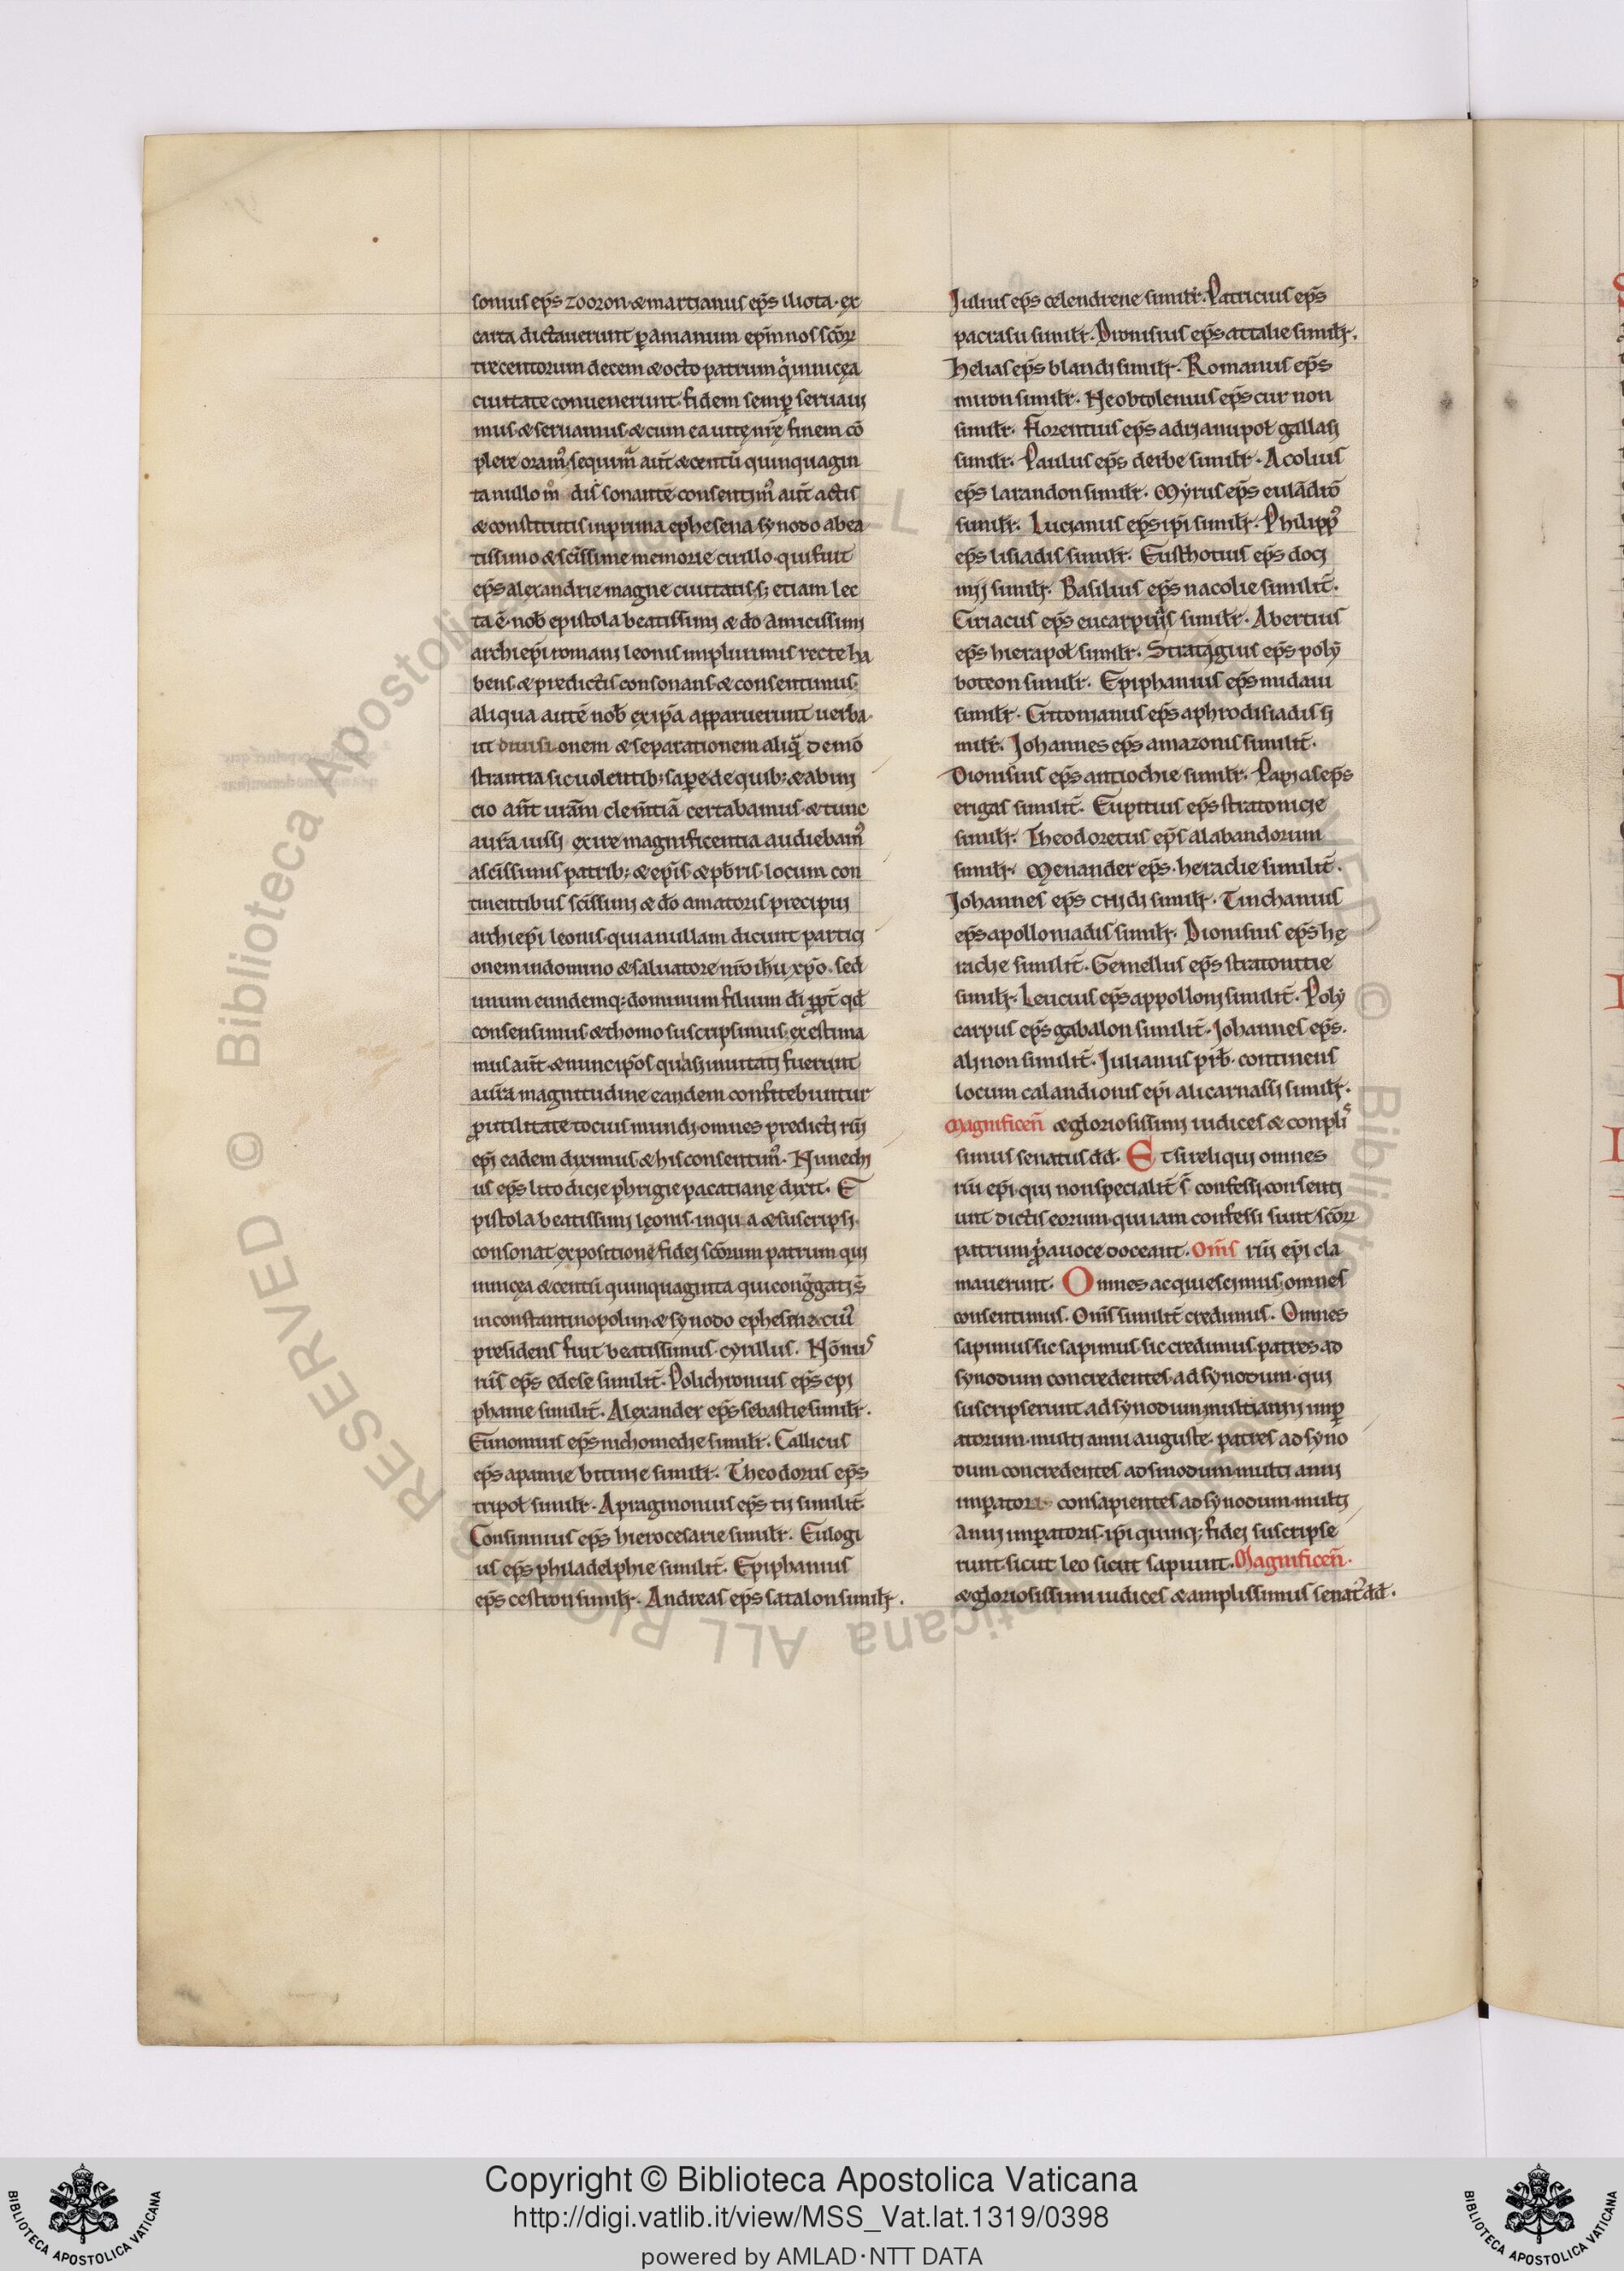 sonius ep̄s zooron. & martianus ep̄s iliota. ex
carta dictauerunt ꝑ amanum ep̄m nos sc̄oꝝ
trecentorum decem & octo patrum q̇ in nicęa
ciuitate conuenerunt. fidem semꝑ seruaui
mus. & seruamus. & cum ea uitę nr̄ę finem cō
plere oram᷒. sequim̄ aut̄ & centū quinquagin
ta nullo m̊ dis sonante consentim᷒ aut̄ actis
& constitutis in prima ephesena synodo a bea
tissimo & sc̄issime memorie cirillo. qui fuit
ep̄s alexandrie magne ciuitatis. s; etiam lec
ta ē. nob̄ epistola beatissimi & do amicissimi
archiep̄i romani leonis in plurimis recte ha
bens. & predictis consonans. & consentimus.
aliqua autē nob̄ ex ip̄a apparuerunt uerba.
ut diuisi onem & separationem aliq̄ demō
strantia sic uolentib; saꝑe de quib; & ab ini
cio an̄t uram clem̄tiā certabamus. & tunc
a ur̄a iussi exire magnificentia audiebam᷒
a sc̄issimis patrib; & ep̄is & pb̄ris. locum con
tinentibus sc̄issimi & do amatoris precipui
archiep̄i leonis. quia nullam dicunt partici
onem in domino & saluatore nr̄o ih̄u xp̄o. sed
unum eundemq; dominum filium di ꝓpt̄ qd̄
consensimus. & thomo suscripsimus. exestima
mus aut̄. & nunc ip̄os quasi inuitati fuerunt
a ur̄a magnitudine eandem confitebuntur
ꝓ utilitate tocius mundi. omnes predicti riī
ep̄i eadem diximus. & his consentim᷒. Nunechi
us ep̄s lito dicie phrigie pacatianę dixit. E
pistola beatissimi leonis. in qu a & suscripsi.
consonat expositione fidei sc̄orum patrum qui
in nicea & centū quinquaginta qui congregati s̄
in constantinopolim. & synodo ephesine cui᷒
presidens fuit beatissimus. cyrillus. Nōnu᷒
riīs ep̄s edese similit̄. Polichronius ep̄s epi
phanie similit̄. Alexander ep̄s sebastie similr̄.
Eunomius ep̄s nichomedie similr̄. Callicus
ep̄s apamie bitinie similr̄. Theodorus ep̄s
tripol̄ similr̄. Apragmonius ep̄s tii similit̄.
Consinnius ep̄s hierocesarie similr̄. Eulogi
us ep̄s philadelphie similit̄. Epiphanius
ep̄s cestron similr̄. Andreas ep̄s satalon similr̄.
Julius ep̄s celendrene similr̄. Patricius ep̄s
pacrasu similr̄. Dionisius ep̄s attalie similr̄.
Helias ep̄s blandi similr̄. Romanus ep̄s
miron similr̄. Neobtolemus ep̄s cur non
similr̄. Florentius ep̄s adrianupol̄ gallasi
similr̄. Paulus ep̄s derbe similr̄. Acolius
ep̄s larandon similr̄. Myrus ep̄s eulādrō
similr̄. Lucianus ep̄s ipsi similr̄. Philipp᷒
ep̄s lisiadis similr̄. Eusthotius ep̄s doci
mii similr̄. Basilius ep̄s nacolie similit̄.
Ciriacus ep̄s eucarpiis similr̄. Abertius
ep̄s hierapol̄ similr̄. Strategius ep̄s poly
boteon similr̄. Epiphanius ep̄s midaiu
similr̄. Critomanus ep̄s aphrodisiadis si
milr̄. Johannes ep̄s amazonis similit̄.
Dionisius ep̄s antiochie similr̄. Papias ep̄s
erigas similit̄. Eupitius ep̄s stratonicie
similr̄. Theodoretus ep̄s alabandorum
similr̄. Menander ep̄s. heradie similit̄.
Johannes ep̄s cnidi similr̄. Tinchanius
ep̄s apolloniadis similr̄. Dionisius ep̄s he
rache similit̄. Gemellus ep̄s stratonitie
similr̄. Leucius ep̄s appolloni similit̄. Poly
carpus ep̄s gabalon similit̄. Johannes ep̄s.
alinon similit̄. Julianus prb̄. continens
locum calandionis ep̄i alicarnassi similr̄.
Magnificen̄ & gloriosissimi iudices & conpli᷒
simus senatus dd̄. Et si reliqui omnes
riī ep̄i. qui non specialit̄ s̄ confessi. consenti
unt dictis eorum. qui iam confessi sunt sc̄oꝝ
patrum ꝓ̇a uoce doceant. Om̄s riī ep̄i cla
mauerunt. Omnes acquiescimus. omnes
consentimus. Om̄s similit̄ credimus. Omnes
sapimus. sic sapimus. sic credimus. patres ad
synodum concredentes. ad synodum. qui
suscripserunt ad synodum. multi anni imꝑ
atorum. multi anni auguste. patres ad syno
dum concredentes ad sinodum. multi anni
imꝑatoris consapientes ad synodum. multi
anni imꝑatoris. ip̄i quinq; fidei suscripse
runt. sicut leo sicut sapiunt. Magnificen̄.
& gloriosissimi iudices & amplissimus senat᷒ dd̄.
RESERVED © Biblioteca Apostolica Vaticana ALL RIGHTS RESERVED © Biblioteca Apostolica Vaticana ALL RIGHTS
Copyright © Biblioteca Apostolica Vaticana
http://digi.vatlib.it/view/MSS_Vat.lat.1319/0398
powered by AMLAD·NTT DATA
BIBLIOTECA APOSTOLICA VATICANA
BIBLIOTECA APOSTOLICA VATICANA